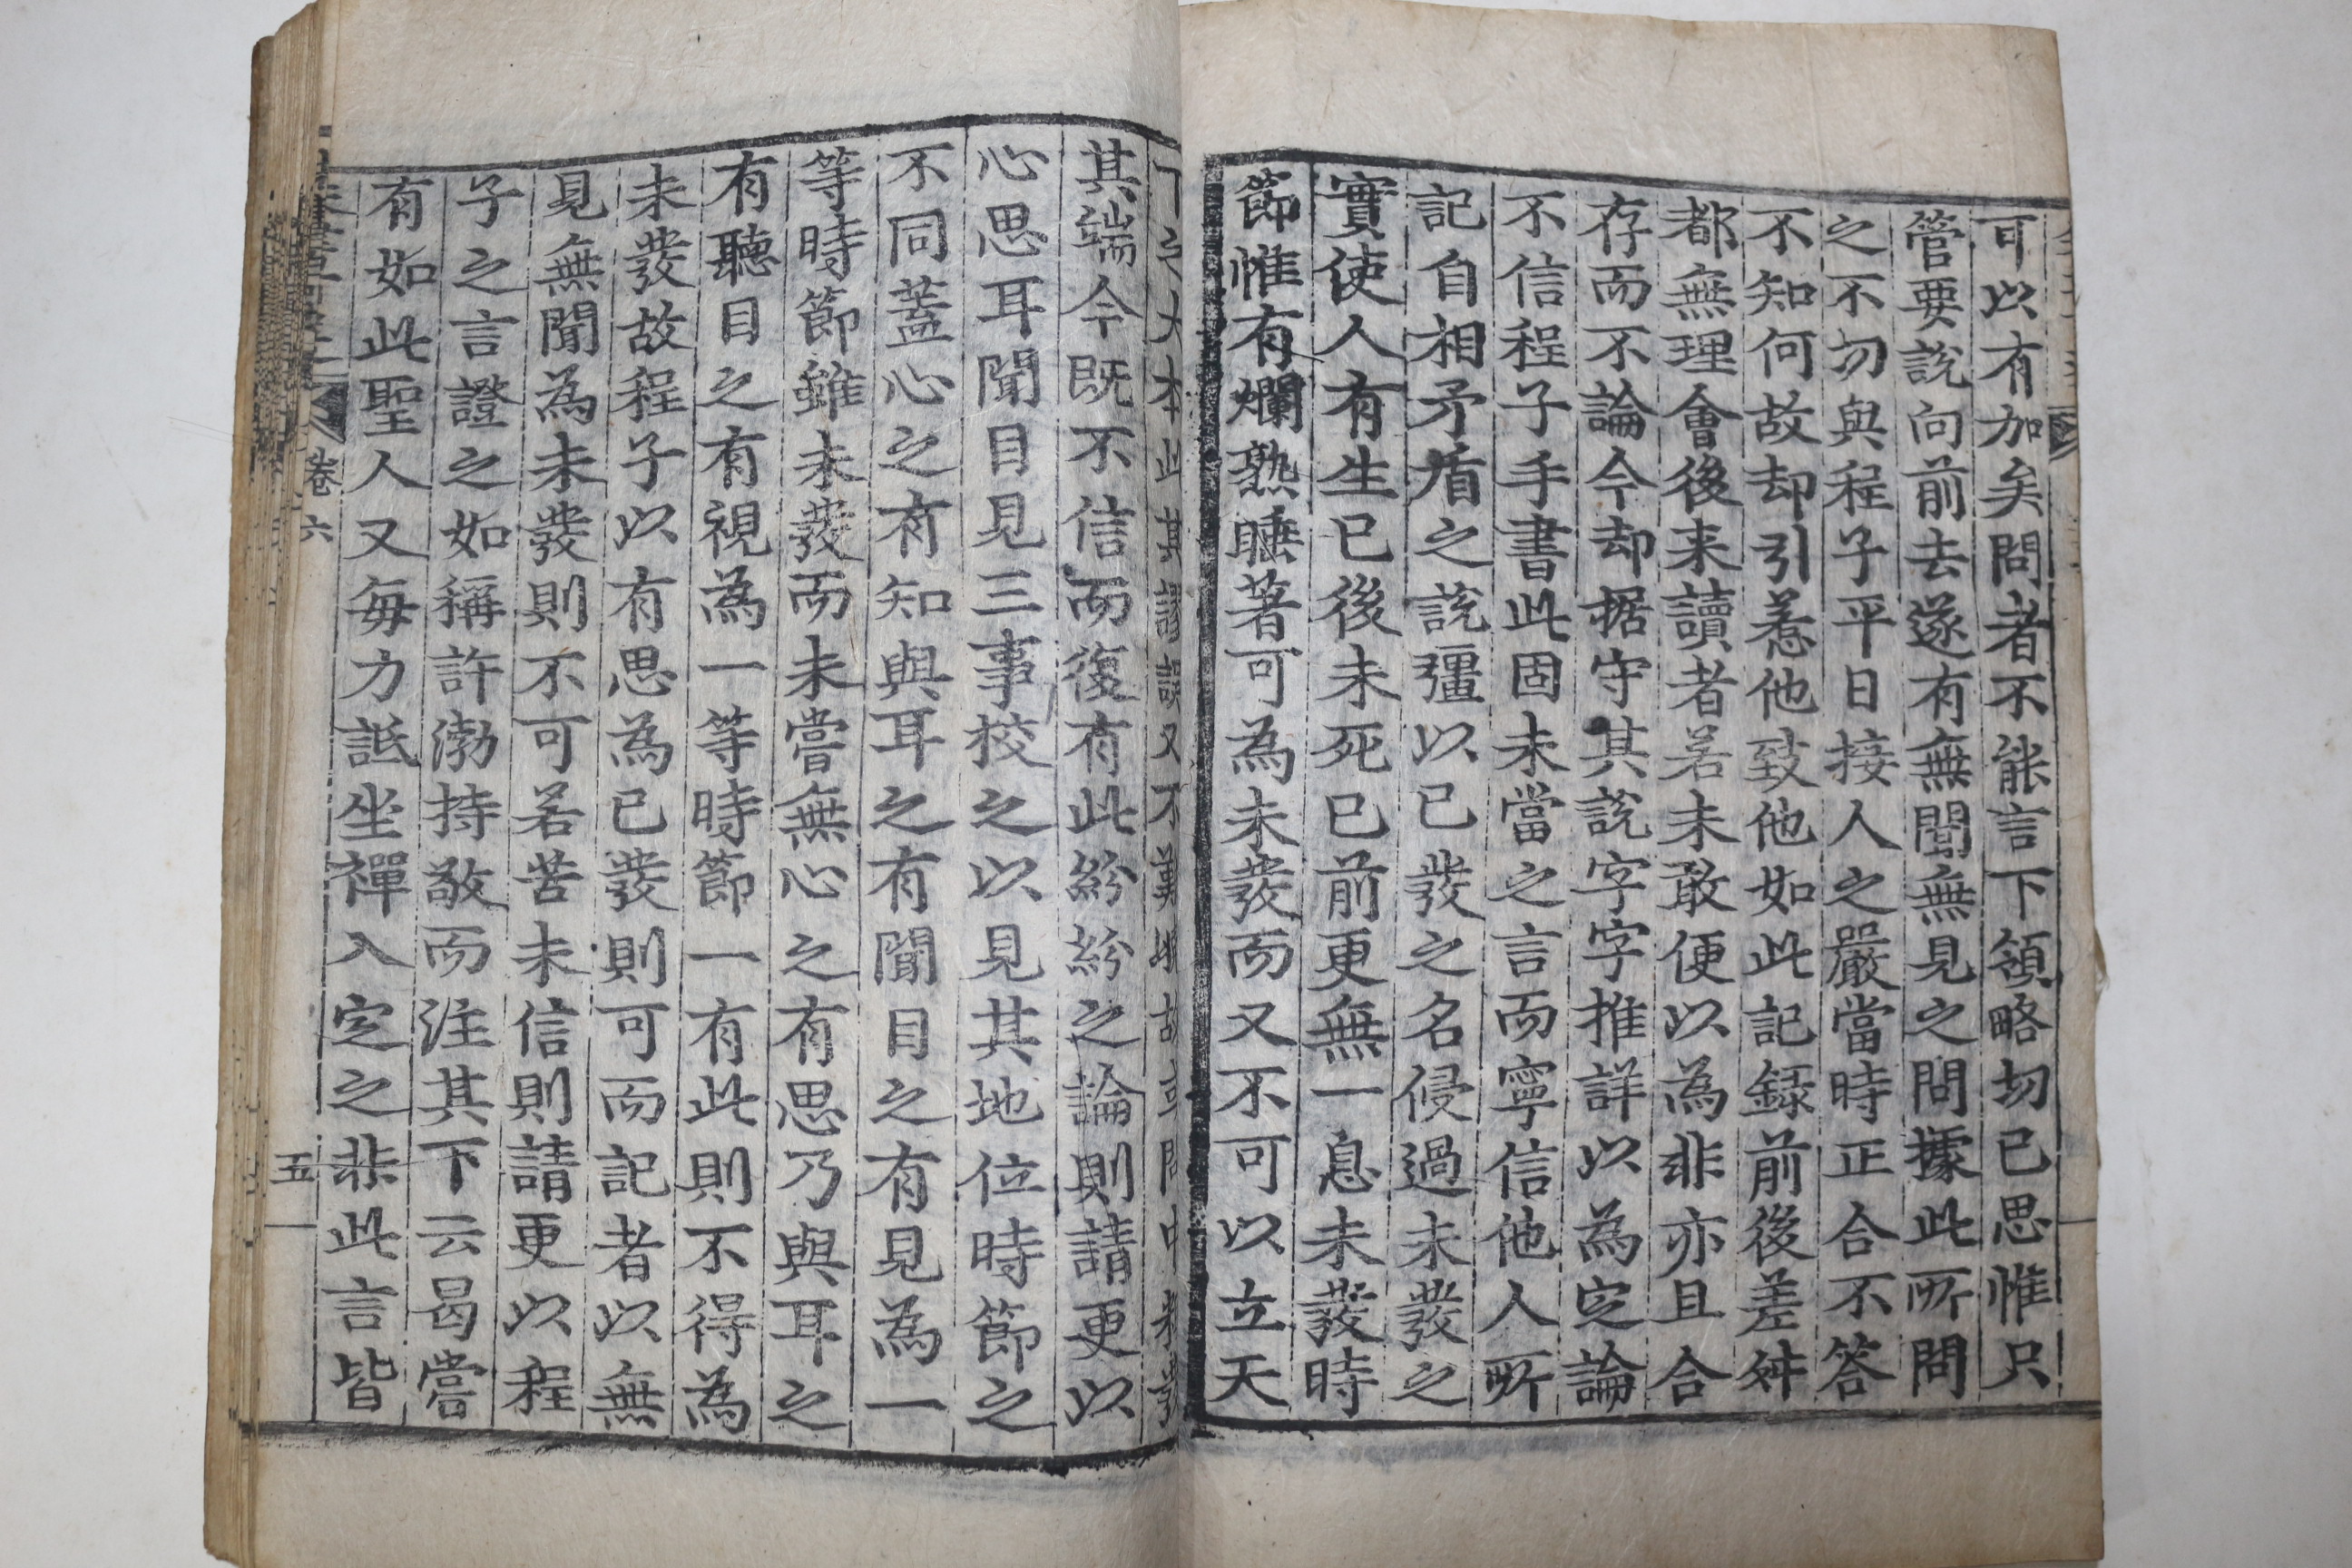 可以有加矣問者不能言下領略切已思惟只
管要說向前去遂有無聞無見之問據此所問
之不切與程子平日接人之嚴當時正合不答
不知何故却引惹他致他如此記錄前後差舛
都無理會後来讀者若未敢便以為非亦且合
存而不論今却据守其說字字推詳以為定論
不信程子手書此固未當之言而寧信他人所
記自相矛盾之說彊以已發之名侵過未發之
實使人有生已後未死已前更無一息未發時
節惟有爛熟睡著可為未發而又不可以立天
下之大本此其謬誤又不難曉故或問中粗發
其端今既不信而復有此紛紛之論則請更以
心思耳聞目見三事校之以見其地位時節之
不同蓋心之有知與耳之有聞目之有見為一
等時節雖未發而未嘗無心之有思乃與耳之
有聽目之有視為一等時節一有此則不得為
未發故程子以有思為已發則可而記者以無
見無聞為未發則不可若苦未信則請更以程
子之言證之如稱許渤持敬而注其下云曷嘗
有如此聖人又每力詆坐禪入定之非此言皆
卷六
五